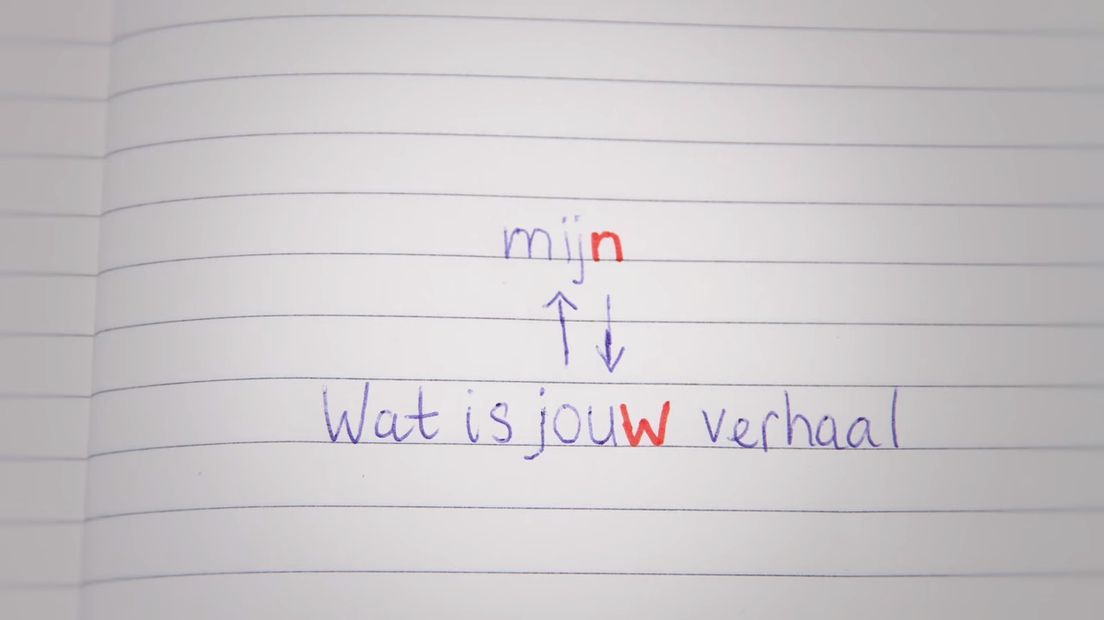 mijn
Wat is jouw verhaal